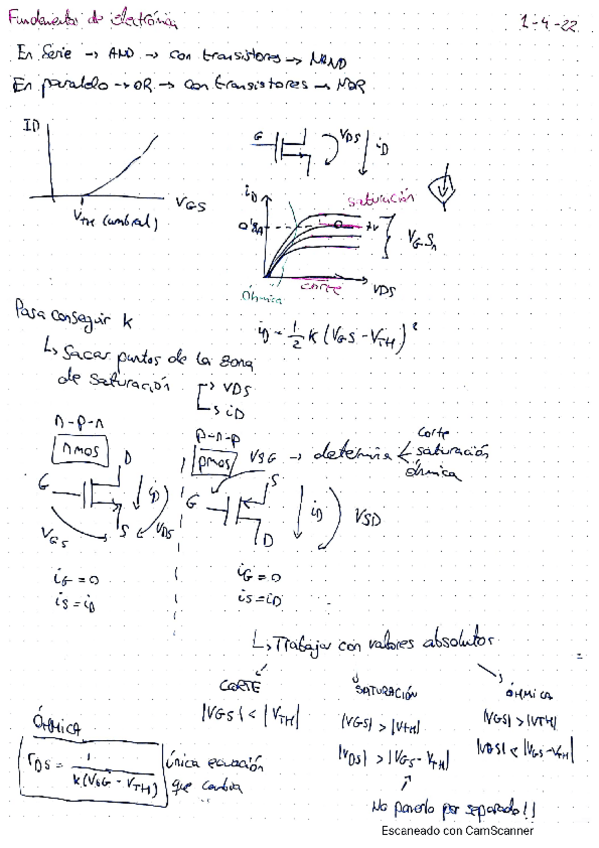 Fundamentos de electrónica 1-4-22
En Serie → AND → con transistores → NAND
En paralelo → OR → con transistores → NOR
ID
VGS
VTH (umbral)
G
VDS
iD
iD
saturación
0'8A
VGSn
óhmica
corte
VDS
Para conseguir K
iD = 1/2 K (VGS - VTH)²
↳ Sacar puntos de la zona
de saturación
→ VDS
→ iD
n-p-n
nmos
D
G
iD
S
VDS
VGS
iG = 0
iS = iD
p-n-p
pmos
VSG → determina
corte
saturación
óhmica
S
G
iD
VSD
D
iG = 0
iS = iD
↳ Trabajar con valores absolutos
CORTE
|VGS| < |VTH|
SATURACIÓN
|VGS| > |VTH|
|VDS| > |VGS - VTH|
ÓHMICA
|VGS| > |VTH|
|VDS| < |VGS - VTH|
No ponerlo por separado!!
ÓHMICA
rDS = 1 / K(VSG - VTH)
única ecuación
que cambia
Escaneado con CamScanner